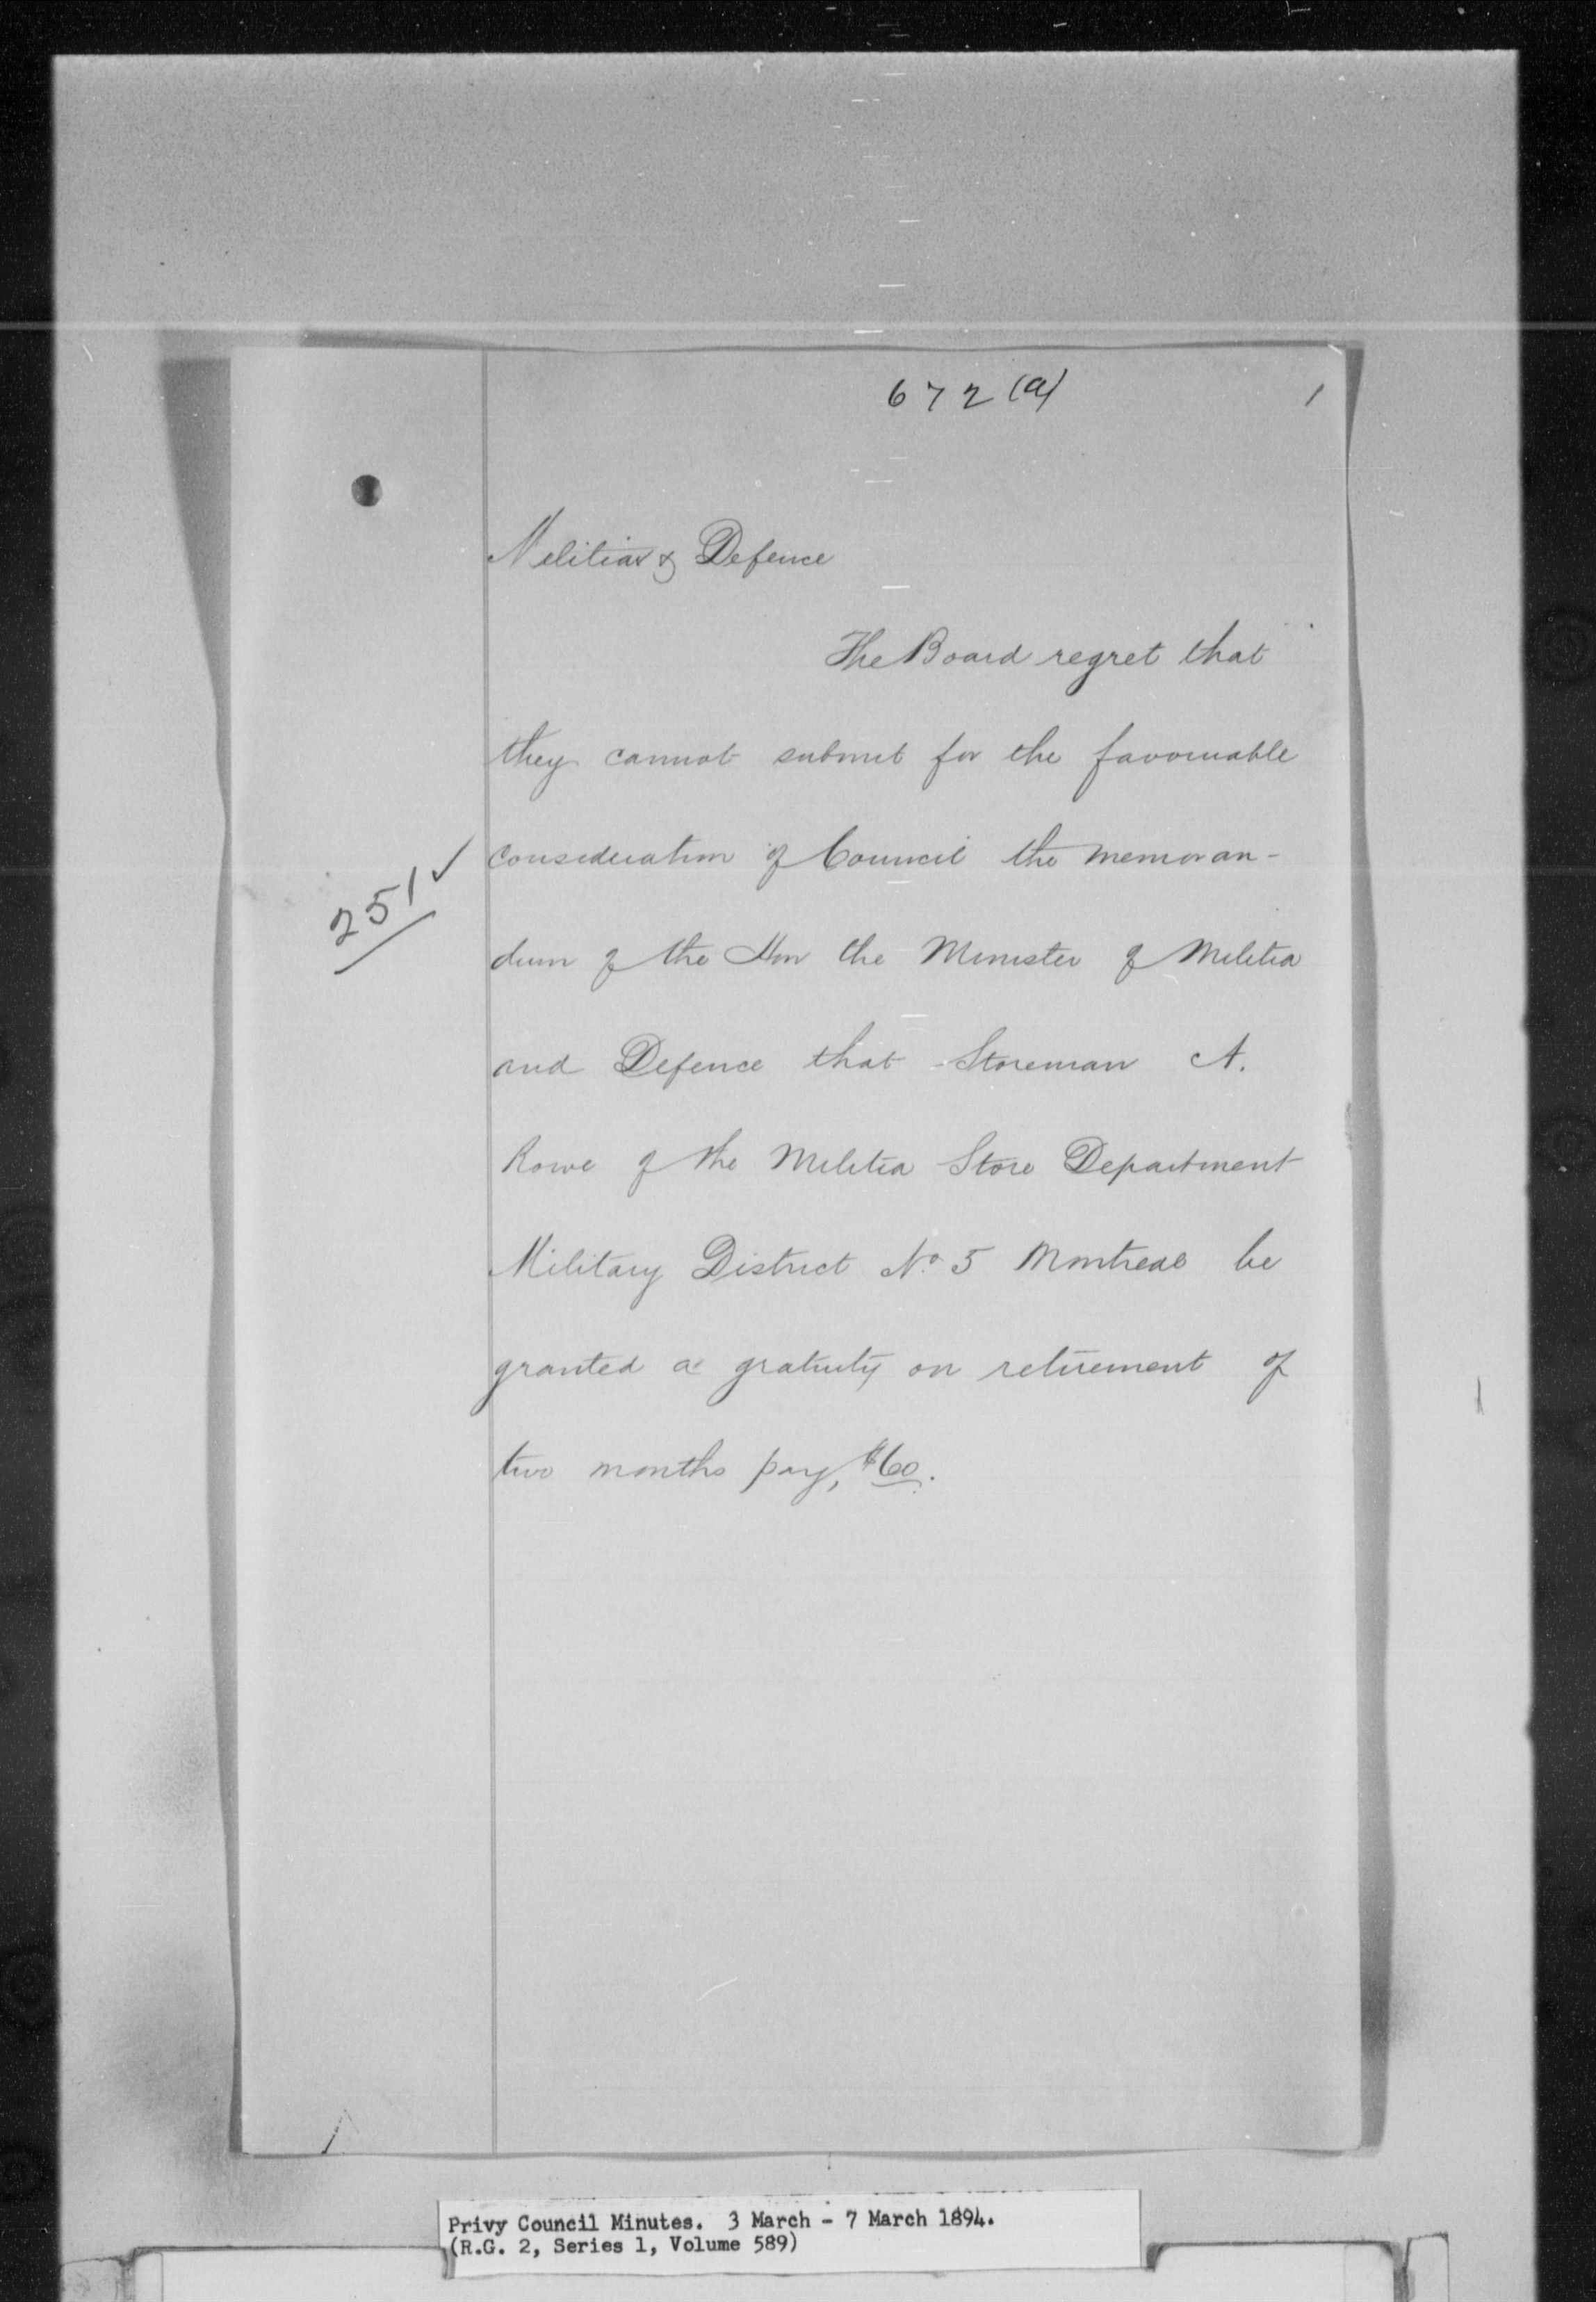 672 (a)
1
Militia & Defence
The Board regret that
they cannot submit for the favourable
251 ✓
consideration of Council the memoran-
dum of the Hon the Minister of Militia
and Defence that Storeman A.
Rowe of the Militia Store Department
Military District No. 5 Montreal be
granted a gratuity on retirement of
two months pay, $60.
Privy Council Minutes. 3 March - 7 March 1894.
(R.G. 2, Series 1, Volume 589)